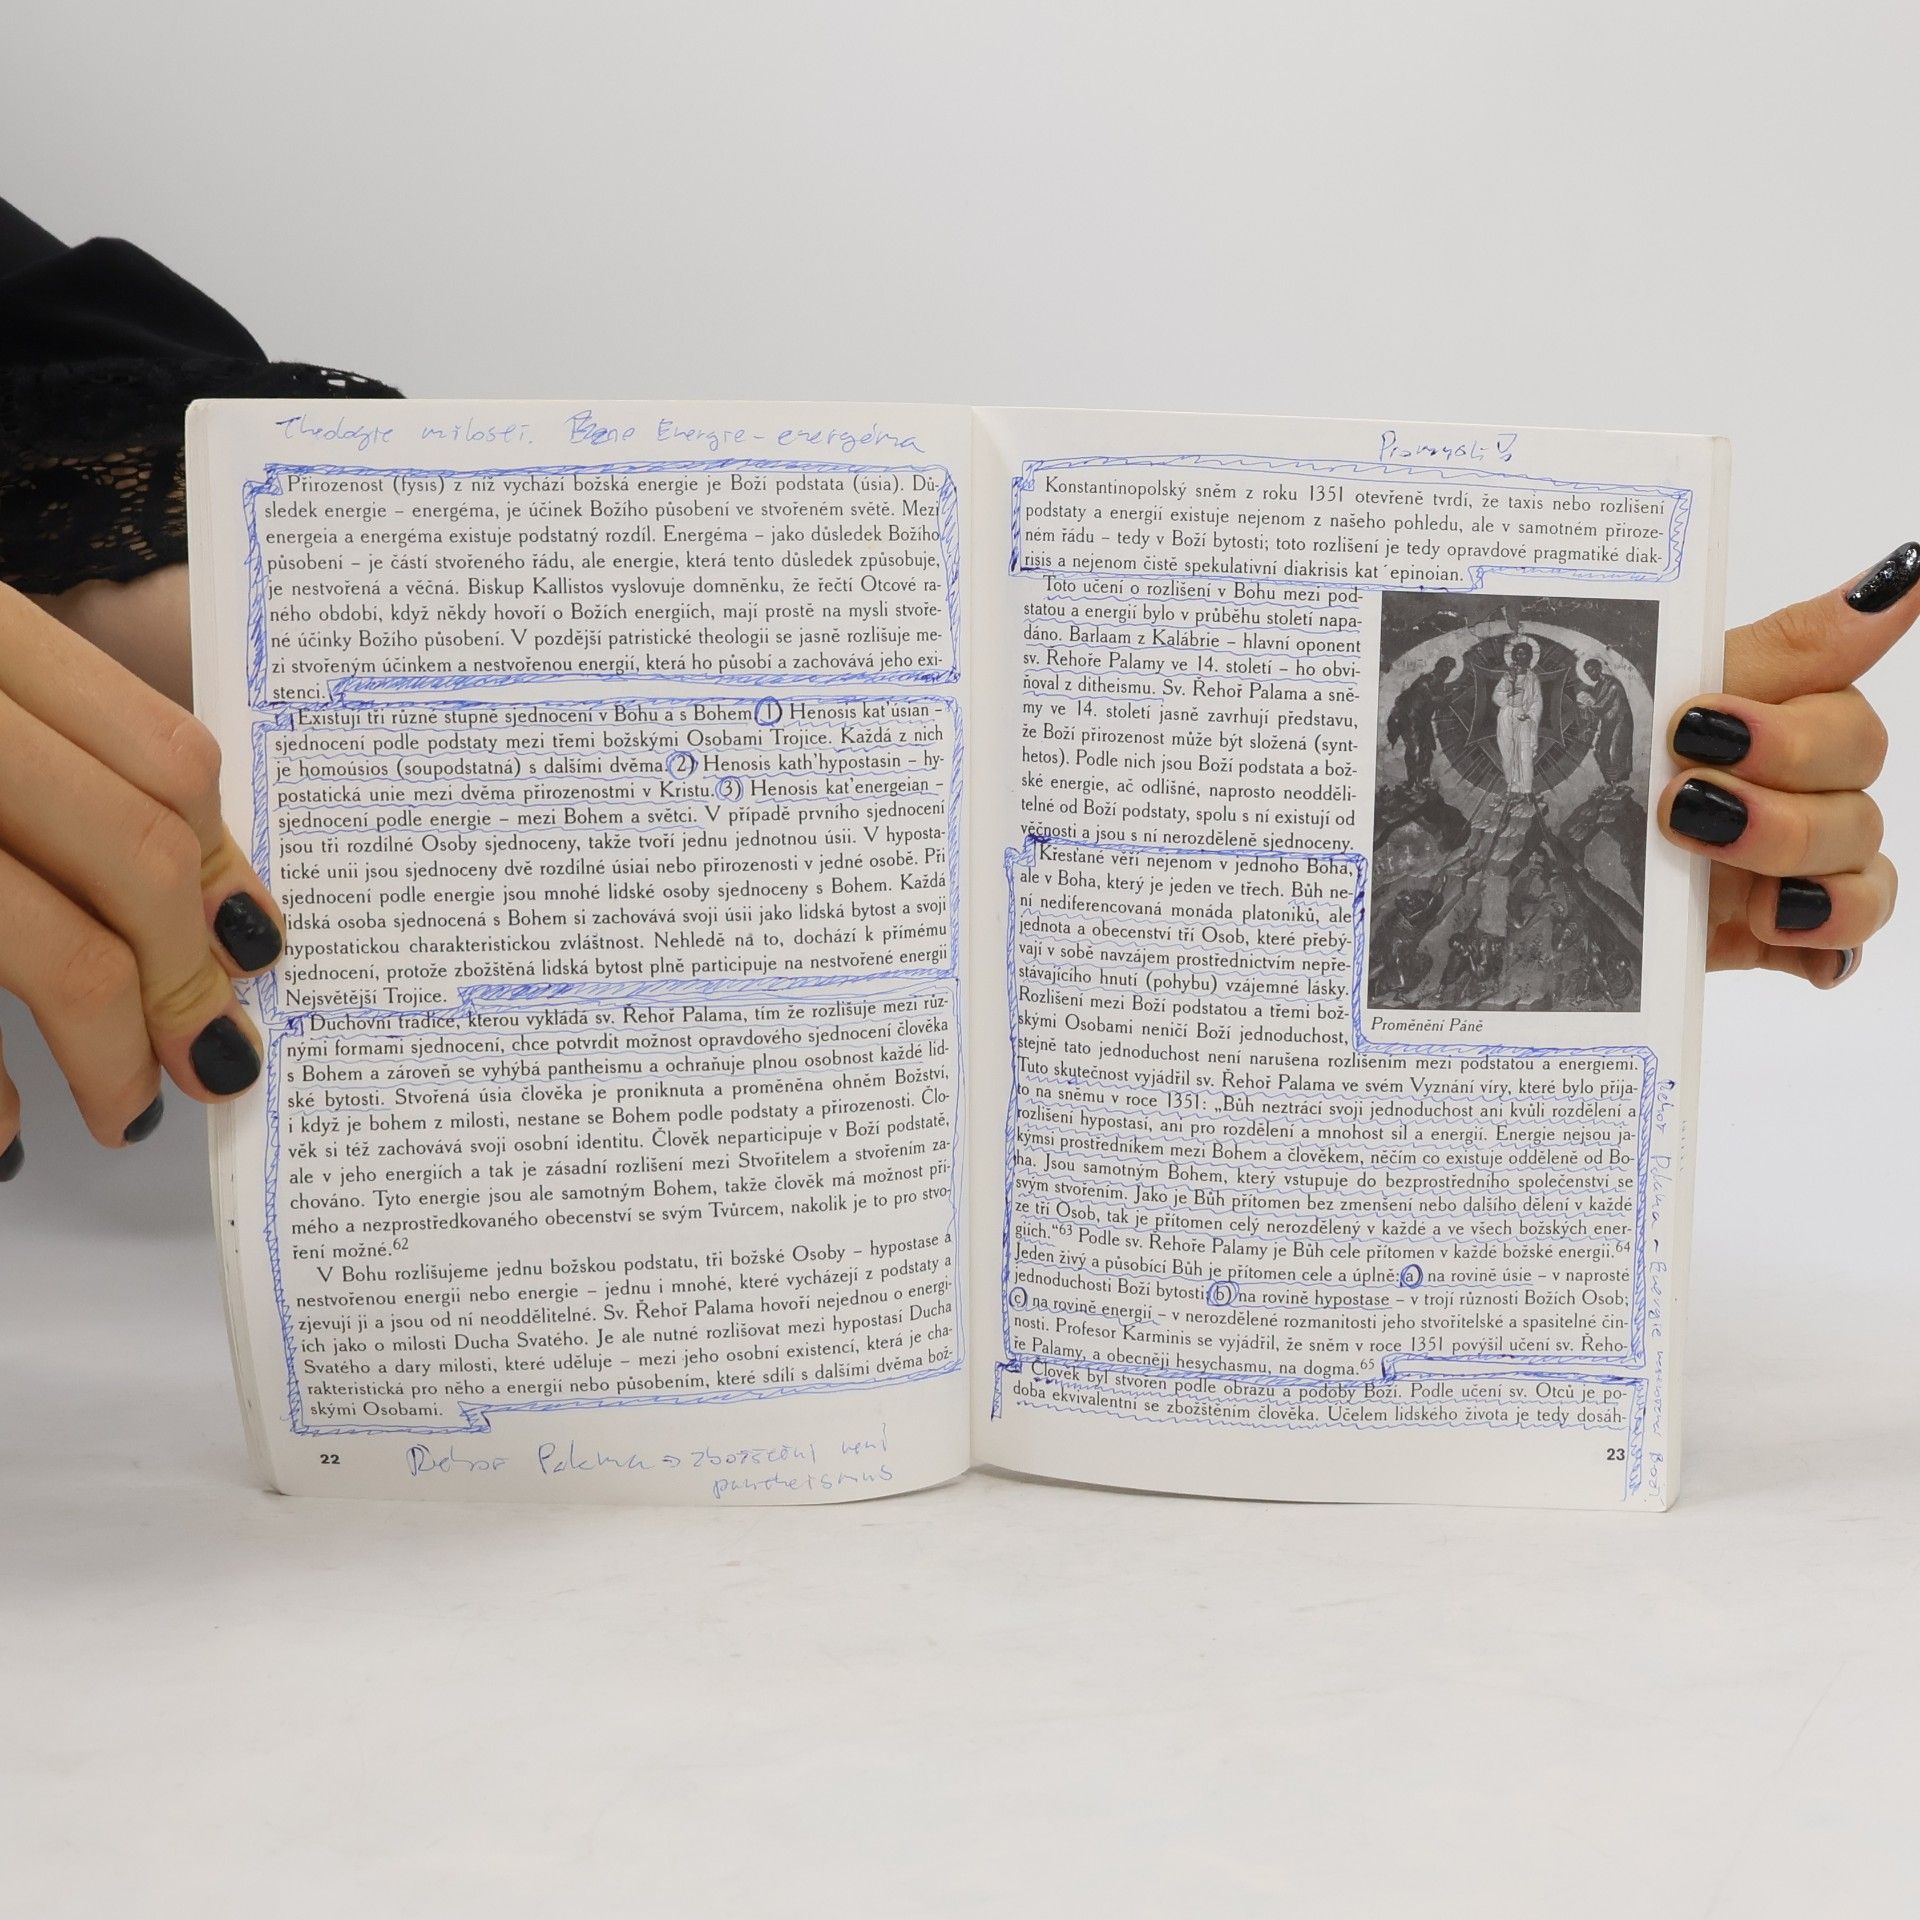 Theologie milosti. Energie – energéma
Přirozenost (fysis) z níž vychází božská energie je Boží podstata (úsia). Dů-
sledek energie – energéma, je účinek Božího působení ve stvořeném světě. Mezi
energeia a energéma existuje podstatný rozdíl. Energéma – jako důsledek Božího
působení – je částí stvořeného řádu, ale energie, která tento důsledek způsobuje,
je nestvořená a věčná. Biskup Kallistos vyslovuje domněnku, že řečtí Otcové ra-
ného období, když někdy hovoří o Božích energiích, mají prostě na mysli stvoře-
né účinky Božího působení. V pozdější patristické theologii se jasně rozlišuje me-
zi stvořeným účinkem a nestvořenou energií, která ho působí a zachovává jeho exi-
stenci.
Existují tři různé stupně sjednocení v Bohu a s Bohem 1) Henosis kat'úsian –
sjednocení podle podstaty mezi třemi božskými Osobami Trojice. Každá z nich
je homoúsios (soupodstatná) s dalšími dvěma. 2) Henosis kath'hypostasin – hy-
postatická unie mezi dvěma přirozenostmi v Kristu. 3) Henosis kat'energeian –
sjednocení podle energie – mezi Bohem a světci. V případě prvního sjednocení
jsou tři rozdílné Osoby sjednoceny, takže tvoří jednu jednotnou úsii. V hyposta-
tické unii jsou sjednoceny dvě rozdílné úsiai nebo přirozenosti v jedné osobě. Při
sjednocení podle energie jsou mnohé lidské osoby sjednoceny s Bohem. Každá
lidská osoba sjednocená s Bohem si zachovává svoji úsii jako lidská bytost a svoji
hypostatickou charakteristickou zvláštnost. Nehledě na to, dochází k přímému
sjednocení, protože zbožštěná lidská bytost plně participuje na nestvořené energii
Nejsvětější Trojice.
Duchovní tradice, kterou vykládá sv. Řehoř Palama, tím že rozlišuje mezi růz-
nými formami sjednocení, chce potvrdit možnost opravdového sjednocení člověka
s Bohem a zároveň se vyhýbá pantheismu a ochraňuje plnou osobnost každé lid-
ské bytosti. Stvořená úsia člověka je proniknuta a proměněna ohněm Božství,
i když je bohem z milosti, nestane se Bohem podle podstaty a přirozenosti. Člo-
věk si též zachovává svoji osobní identitu. Člověk neparticipuje v Boží podstatě,
ale v jeho energiích a tak je zásadní rozlišení mezi Stvořitelem a stvořením za-
chováno. Tyto energie jsou ale samotným Bohem, takže člověk má možnost pří-
mého a nezprostředkovaného obecenství se svým Tvůrcem, nakolik je to pro stvo-
ření možné.62
V Bohu rozlišujeme jednu božskou podstatu, tři božské Osoby – hypostase a
nestvořenou energii nebo energie – jednu i mnohé, které vycházejí z podstaty a
zjevují ji a jsou od ní neoddělitelné. Sv. Řehoř Palama hovoří nejednou o energi-
ích jako o milosti Ducha Svatého. Je ale nutné rozlišovat mezi hypostasí Ducha
Svatého a dary milosti, které uděluje – mezi jeho osobní existencí, která je cha-
rakteristická pro něho a energií nebo působením, které sdílí s dalšími dvěma bož-
skými Osobami.
22
Řehoř Palama => zbožštění není
pantheismus
Konstantinopolský sněm z roku 1351 otevřeně tvrdí, že taxis nebo rozlišení
podstaty a energií existuje nejenom z našeho pohledu, ale v samotném přiroze-
ném řádu – tedy v Boží bytosti; toto rozlišení je tedy opravdové pragmatiké diak-
risis a nejenom čistě spekulativní diakrisis kat´epinoian.
Toto učení o rozlišení v Bohu mezi pod-
statou a energií bylo v průběhu století napa-
dáno. Barlaam z Kalábrie – hlavní oponent
sv. Řehoře Palamy ve 14. století – ho obvi-
ňoval z ditheismu. Sv. Řehoř Palama a sně-
my ve 14. století jasně zavrhují představu,
že Boží přirozenost může být složená (synt-
hetos). Podle nich jsou Boží podstata a bož-
ské energie, ač odlišné, naprosto neodděli-
telné od Boží podstaty, spolu s ní existují od
věčnosti a jsou s ní nerozděleně sjednoceny.
Křesťané věří nejenom v jednoho Boha,
ale v Boha, který je jeden ve třech. Bůh ne-
ní nediferencovaná monáda platoniků, ale
jednota a obecenství tří Osob, které přebý-
vají v sobě navzájem prostřednictvím nepře-
stávajícího hnutí (pohybu) vzájemné lásky.
Rozlišení mezi Boží podstatou a třemi bož-
skými Osobami neničí Boží jednoduchost,
stejně tato jednoduchost není narušena rozlišením mezi podstatou a energiemi.
Tuto skutečnost vyjádřil sv. Řehoř Palama ve svém Vyznání víry, které bylo přija-
to na sněmu v roce 1351: „Bůh neztrácí svoji jednoduchost ani kvůli rozdělení a
rozlišení hypostasí, ani pro rozdělení a mnohost sil a energií. Energie nejsou ja-
kýmsi prostředníkem mezi Bohem a člověkem, něčím co existuje odděleně od Bo-
ha. Jsou samotným Bohem, který vstupuje do bezprostředního společenství se
svým stvořením. Jako je Bůh přítomen bez zmenšení nebo dalšího dělení v každé
ze tří Osob, tak je přítomen celý nerozdělený v každé a ve všech božských ener-
giích.“63 Podle sv. Řehoře Palamy je Bůh cele přítomen v každé božské energii.64
Jeden živý a působící Bůh je přítomen cele a úplně: a) na rovině úsie – v naprosté
jednoduchosti Boží bytosti; b) na rovině hypostase – v trojí různosti Božích Osob;
c) na rovině energií – v nerozdělené rozmanitosti jeho stvořitelské a spasitelné čin-
nosti. Profesor Karminis se vyjádřil, že sněm v roce 1351 povýšil učení sv. Řeho-
ře Palamy, a obecněji hesychasmu, na dogma.65
Člověk byl stvořen podle obrazu a podoby Boží. Podle učení sv. Otců je po-
doba ekvivalentní se zbožštěním člověka. Účelem lidského života je tedy dosáh-
Proměnění Páně
23
Řehoř Palama – Energie Boží